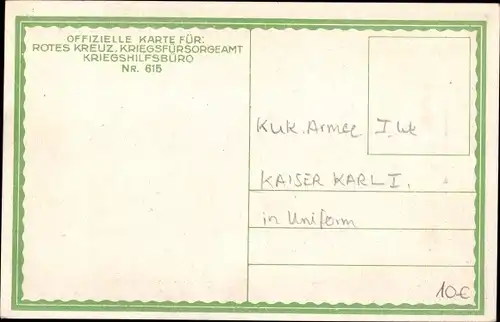 OFFIZIELLE KARTE FÜR:
ROTES KREUZ, KRIEGSFÜRSORGEAMT
KRIEGSHILFSBÜRO
NR. 615
KuK. Armee I. Wk
KAISER KARL I.
in Uniform
10€